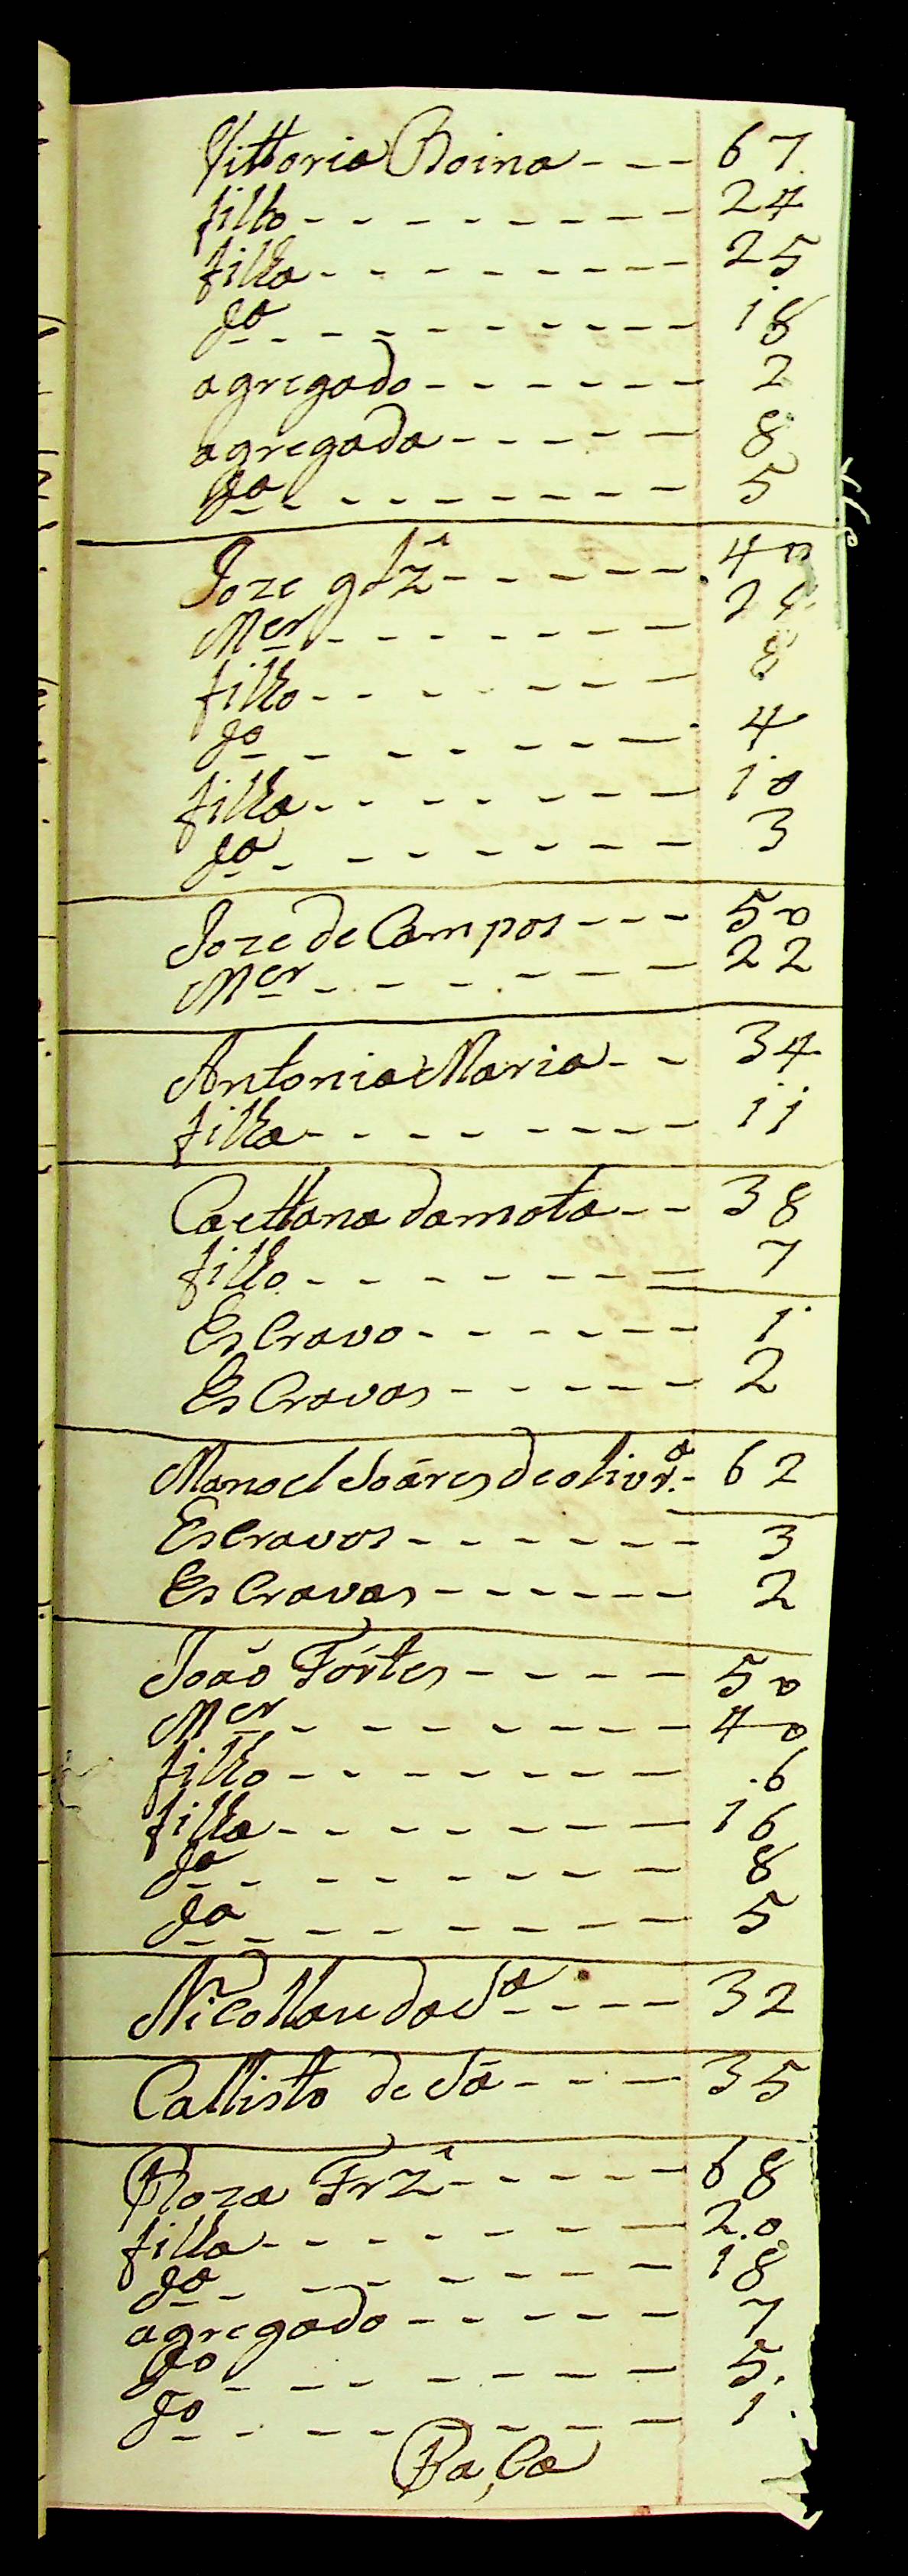 Vittoria Boina - - - 67
filho - - - - - - - - - 24
filha - - - - - - - - - 25
da - - - - - - - - - - 18
agregado - - - - - - - 2
agregada - - - - - - 8
da - - - - - - - - - 5
Joze glz - - - - - - 40
Mer - - - - - - - -
filho - - - - - - - - 8
do - - - - - - - - 4
filha - - - - - - - - 10
da - - - - - - - - - 3
Joze de Campos - - - 50
Mer - - - - - - - 22
Antonia Maria - - 34
filha - - - - - - - - 11
Caettana damota - - 38
filho - - - - - - - = 7
EsCravo - - - - - - 1
EsCravas - - - - - - 2
Manoel Soáres deolivra. - 62
EsCravos - - - - - - 3
EsCravas - - - - - - 2
João Fórtes - - - - - 50
Mer - - - - - - - - 40
filho - - - - - - - - 6
filha - - - - - - - - 16
da - - - - - - - - 8
da - - - - - - - - 5
daSa - - - - 32
Callisto de Sá - - - - 35
Roza Frz - - - - - - 68
filha - - - - - - - - 20
da - - - - - - - - 18
agregado - - - - - - 7
do - - - - - - - - 5
do - - - - - - - - 1